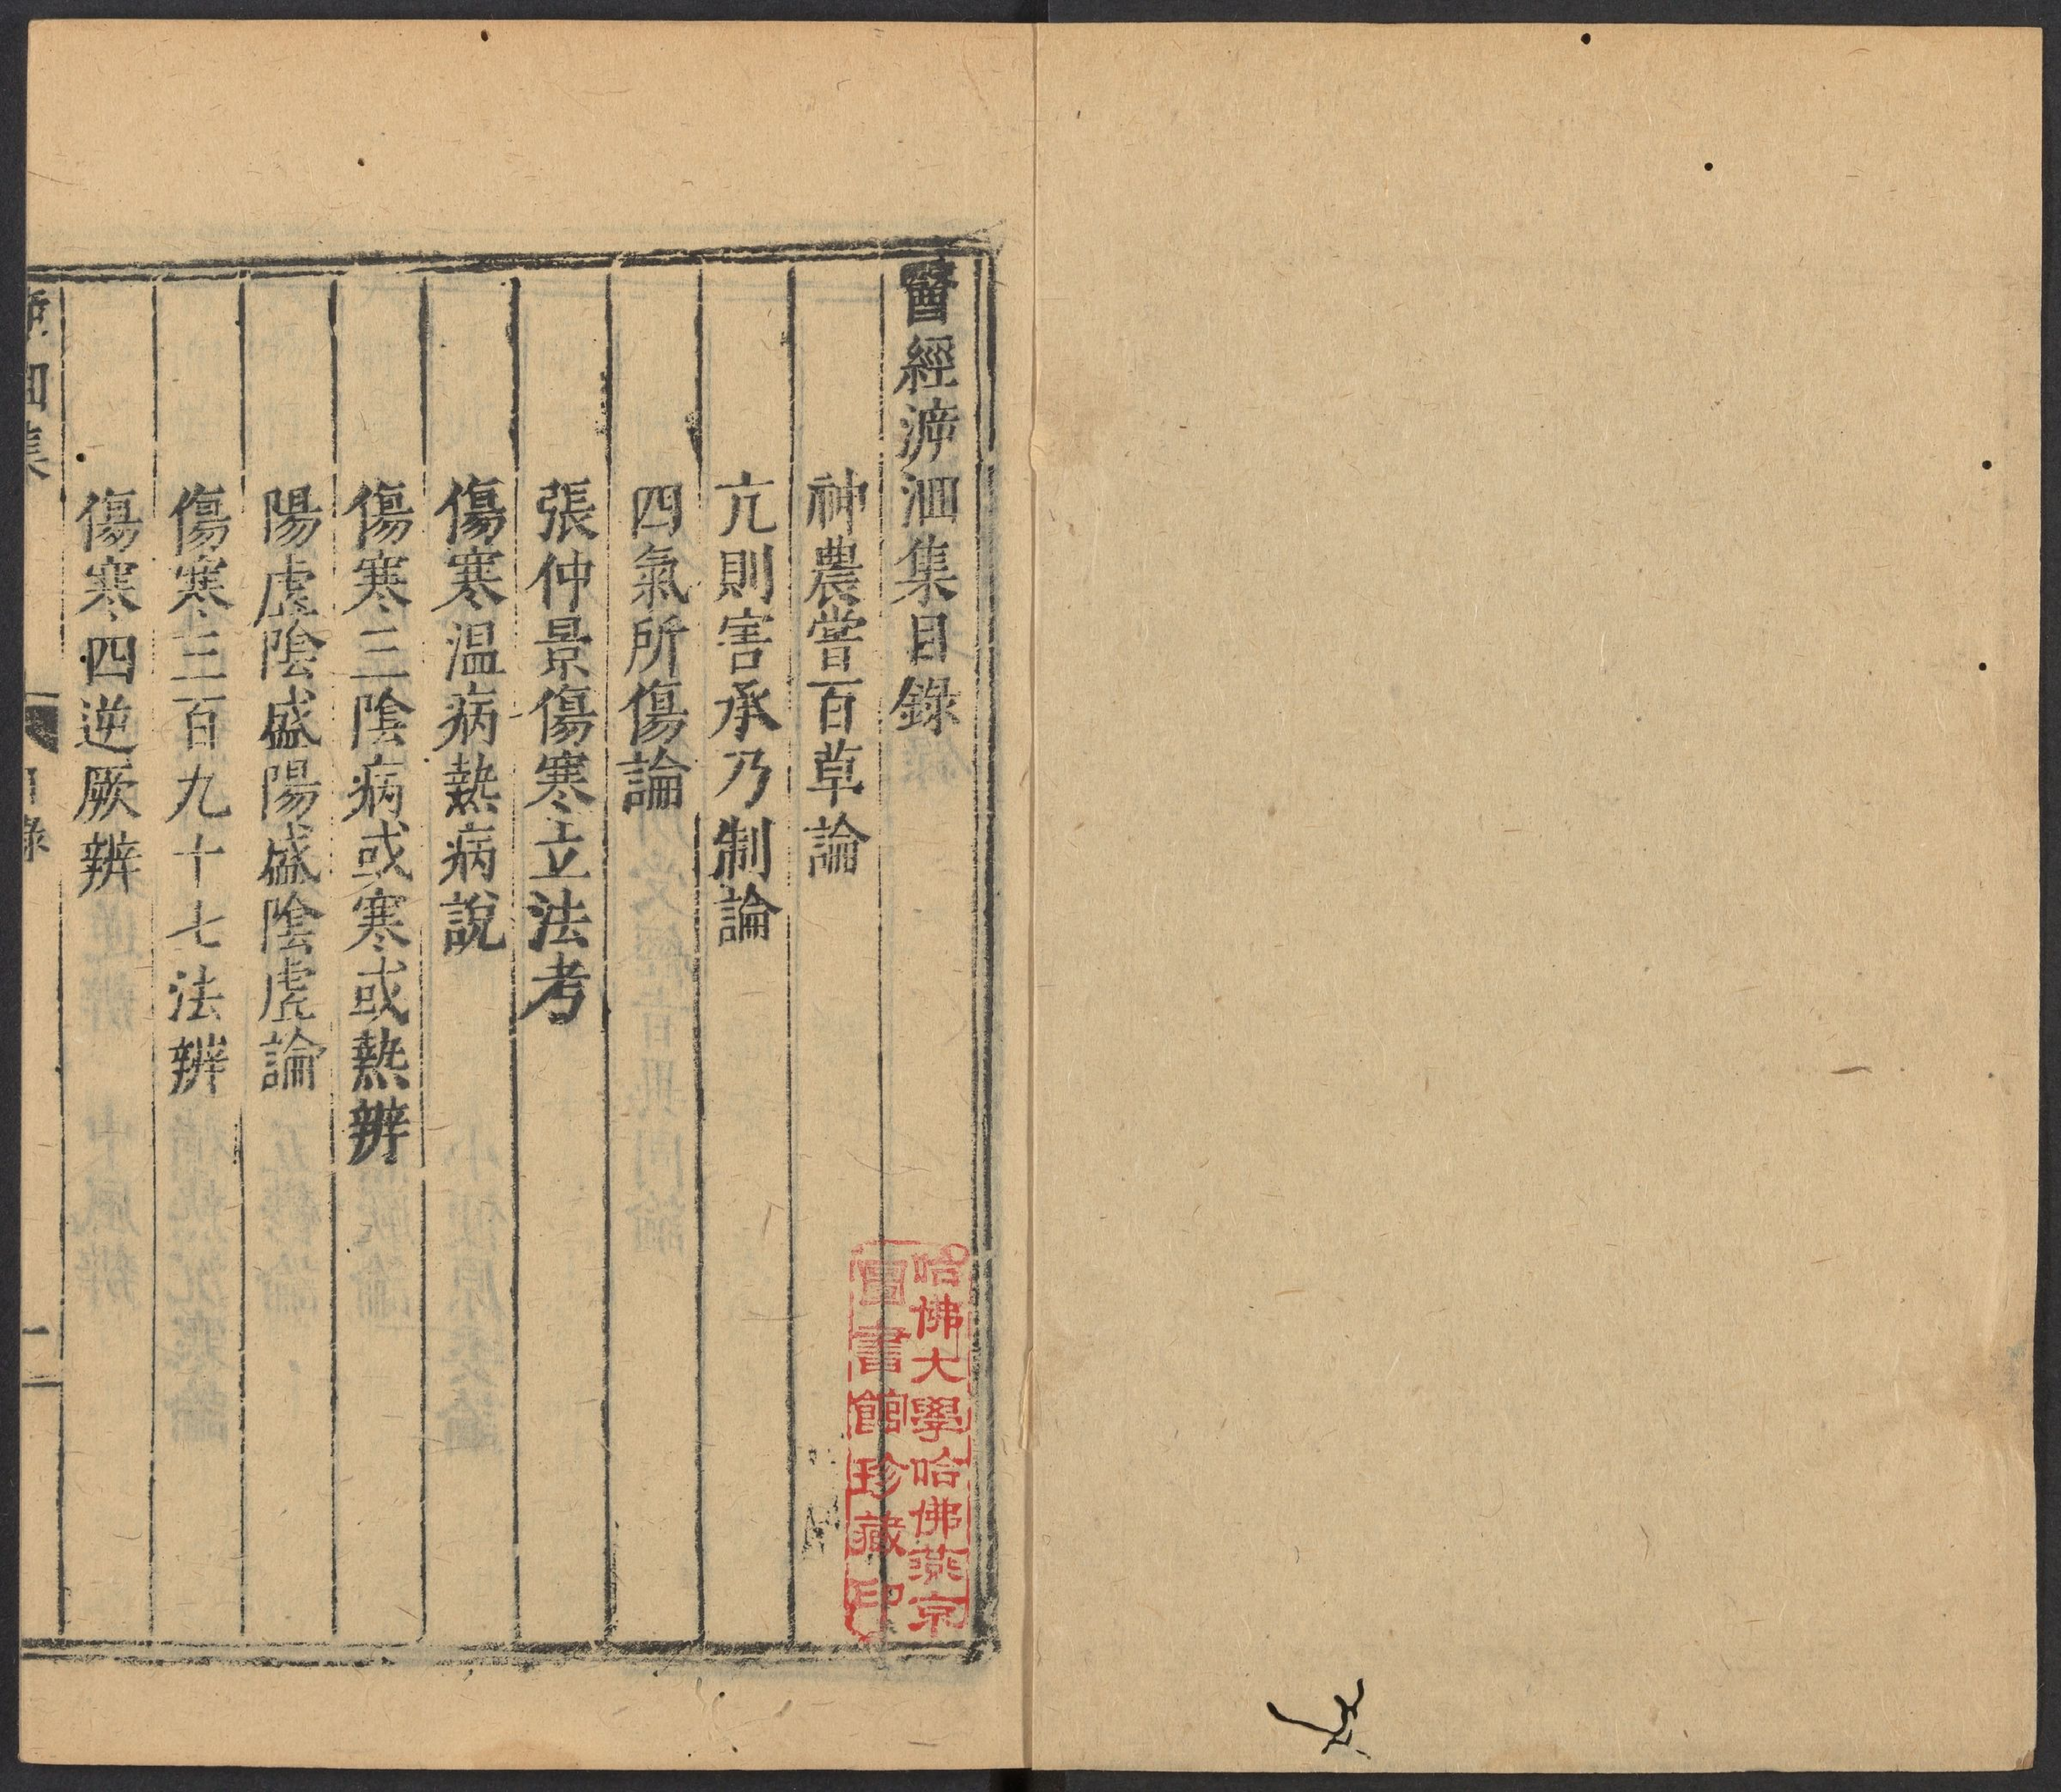 醫經㴑洄集目錄
神農嘗百草論
亢則害承乃制論
四氣所傷論
張仲景傷寒立法考
傷寒温病熱病說
傷寒三陰病或寒或熱辨
陽虛陰盛陽盛陰虛論
傷寒三百九十七法辨
傷寒四逆厥辨
洄集
目錄
一
哈佛大學哈佛燕京
圖書館珍藏印